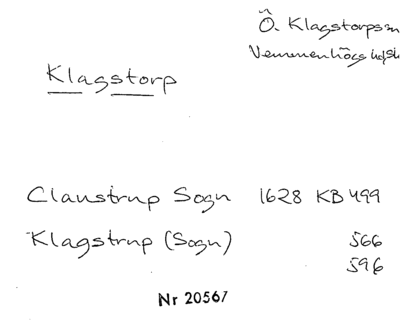 Ö. Klagstorps sn
Vemmenhögs hd, Sk
Klagstorp
Claustrup Sogn 1628 KB 499
Klagstrup (Sogn) 566
596
Nr 20567